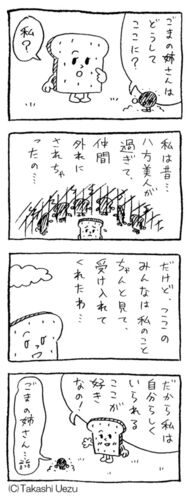 ごまの姉さんは
どうして
ここに？
私？
私は昔…
八方美人が
過ぎて、
仲間
外れに
されちゃ
ったの…
だけど、ここの
みんなは私のこと
ちゃんと見て、
受け入れて
くれたわ…
だから私は
自分らしく
いられる
ここが
好き
なの！
ごまの姉さん…涙
(C)Takashi Uezu